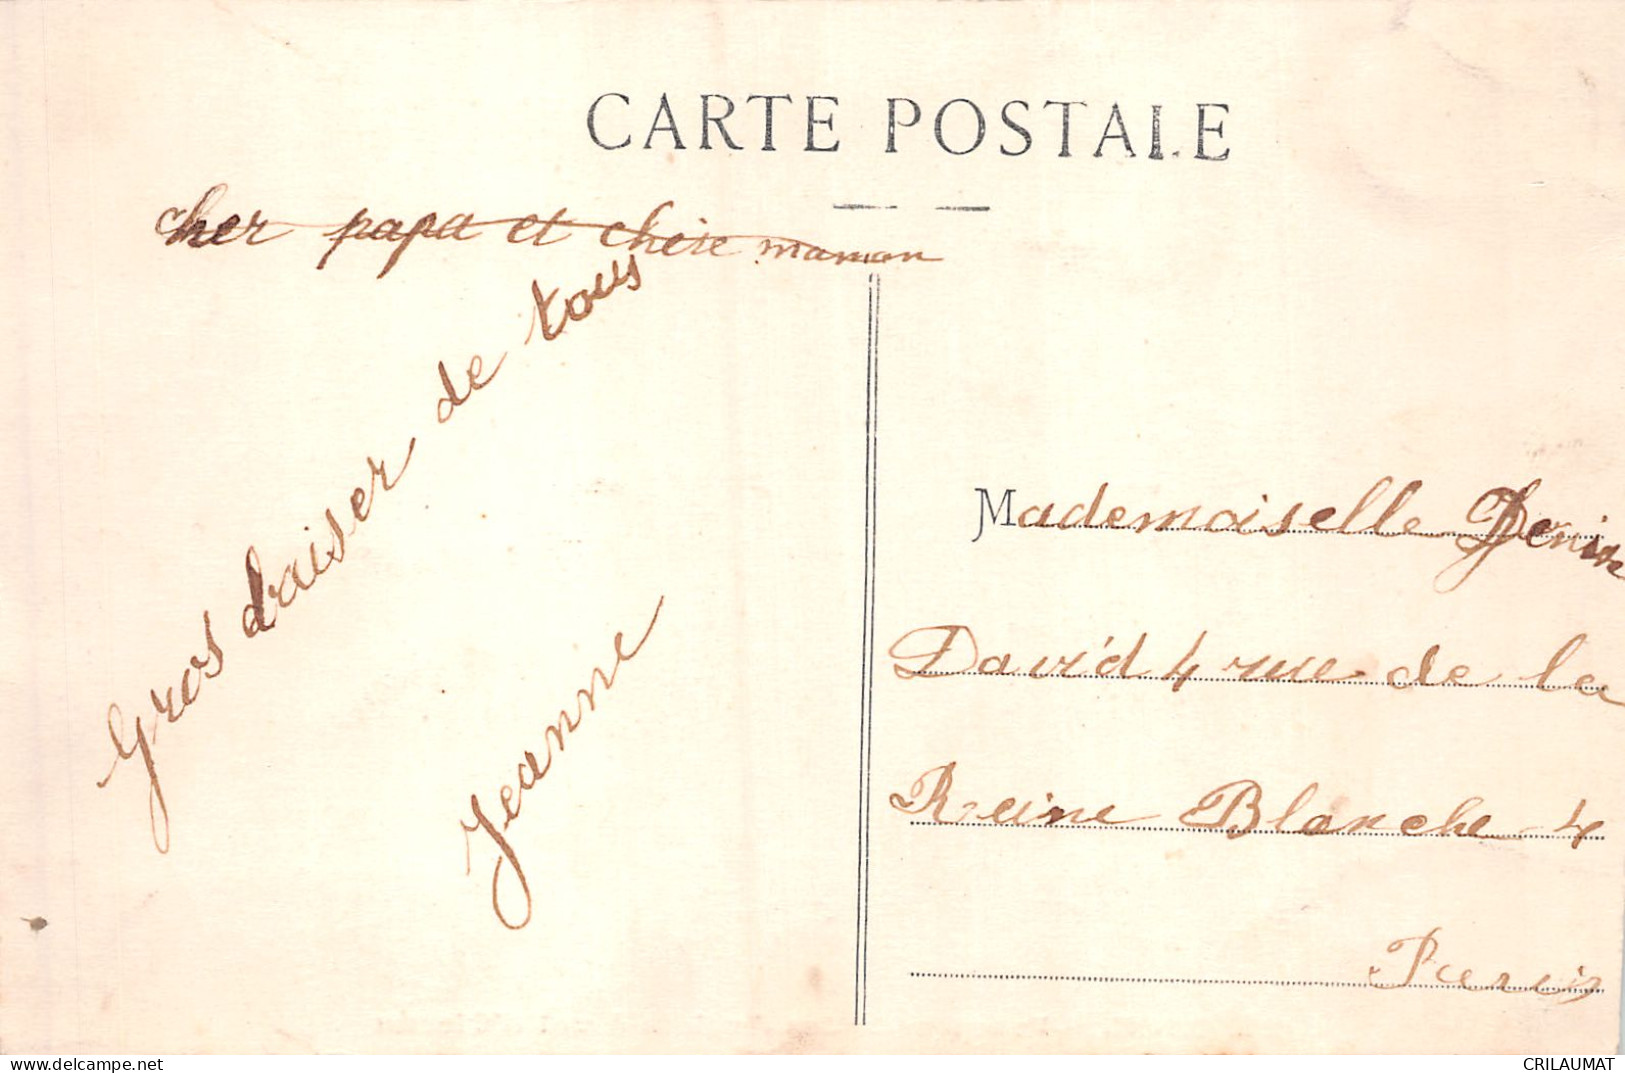 CARTE POSTALE
Cher papa et chère maman
Gros baiser de tous
Jeanne
Mademoiselle Denise
David 4 rue de la
Reine Blanche 4
Paris
www.delcampe.net
CRILAUMAT